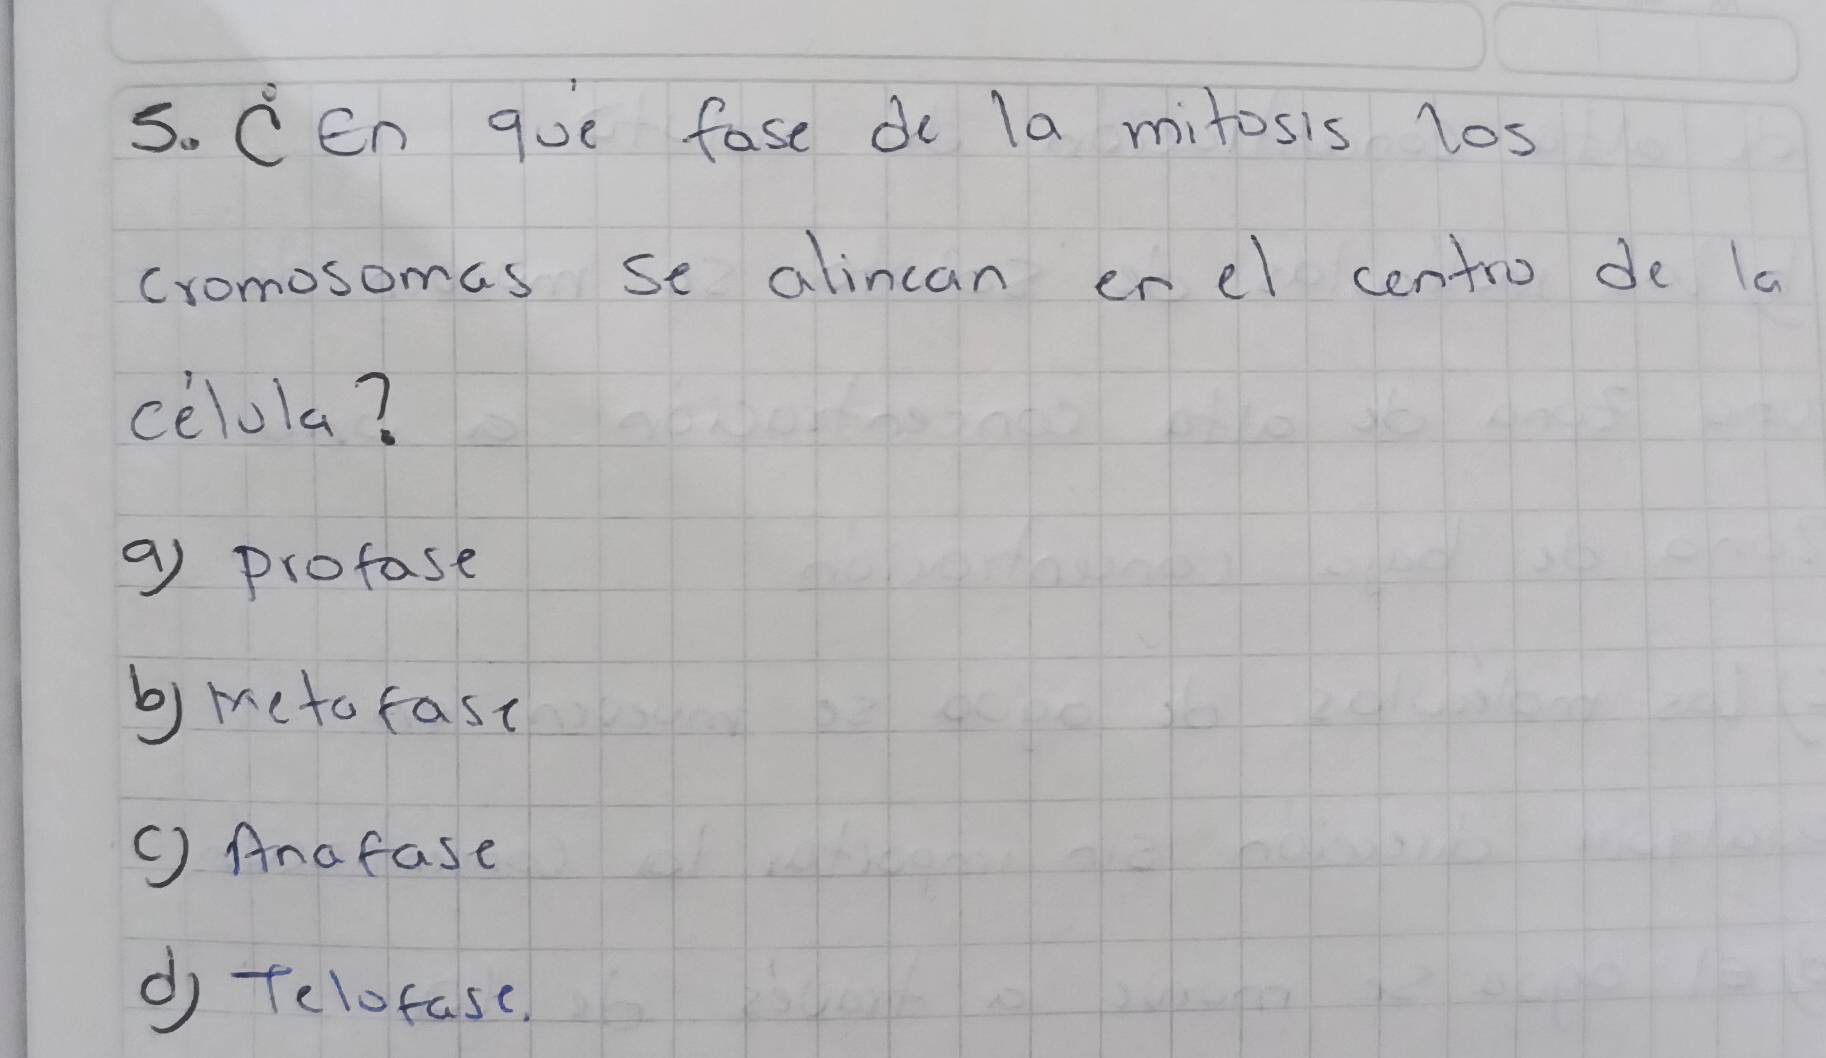 5. ¿En qué fase de la mitosis los
cromosomas se alinean en el centro de la
célula?
a) profase
b) metafase
c) Anafase
d) Telofase.